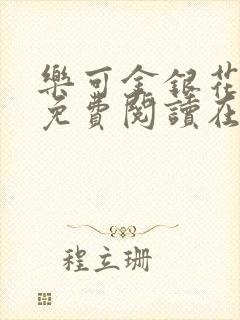 樂可金銀花
免費閱讀在
程立珊